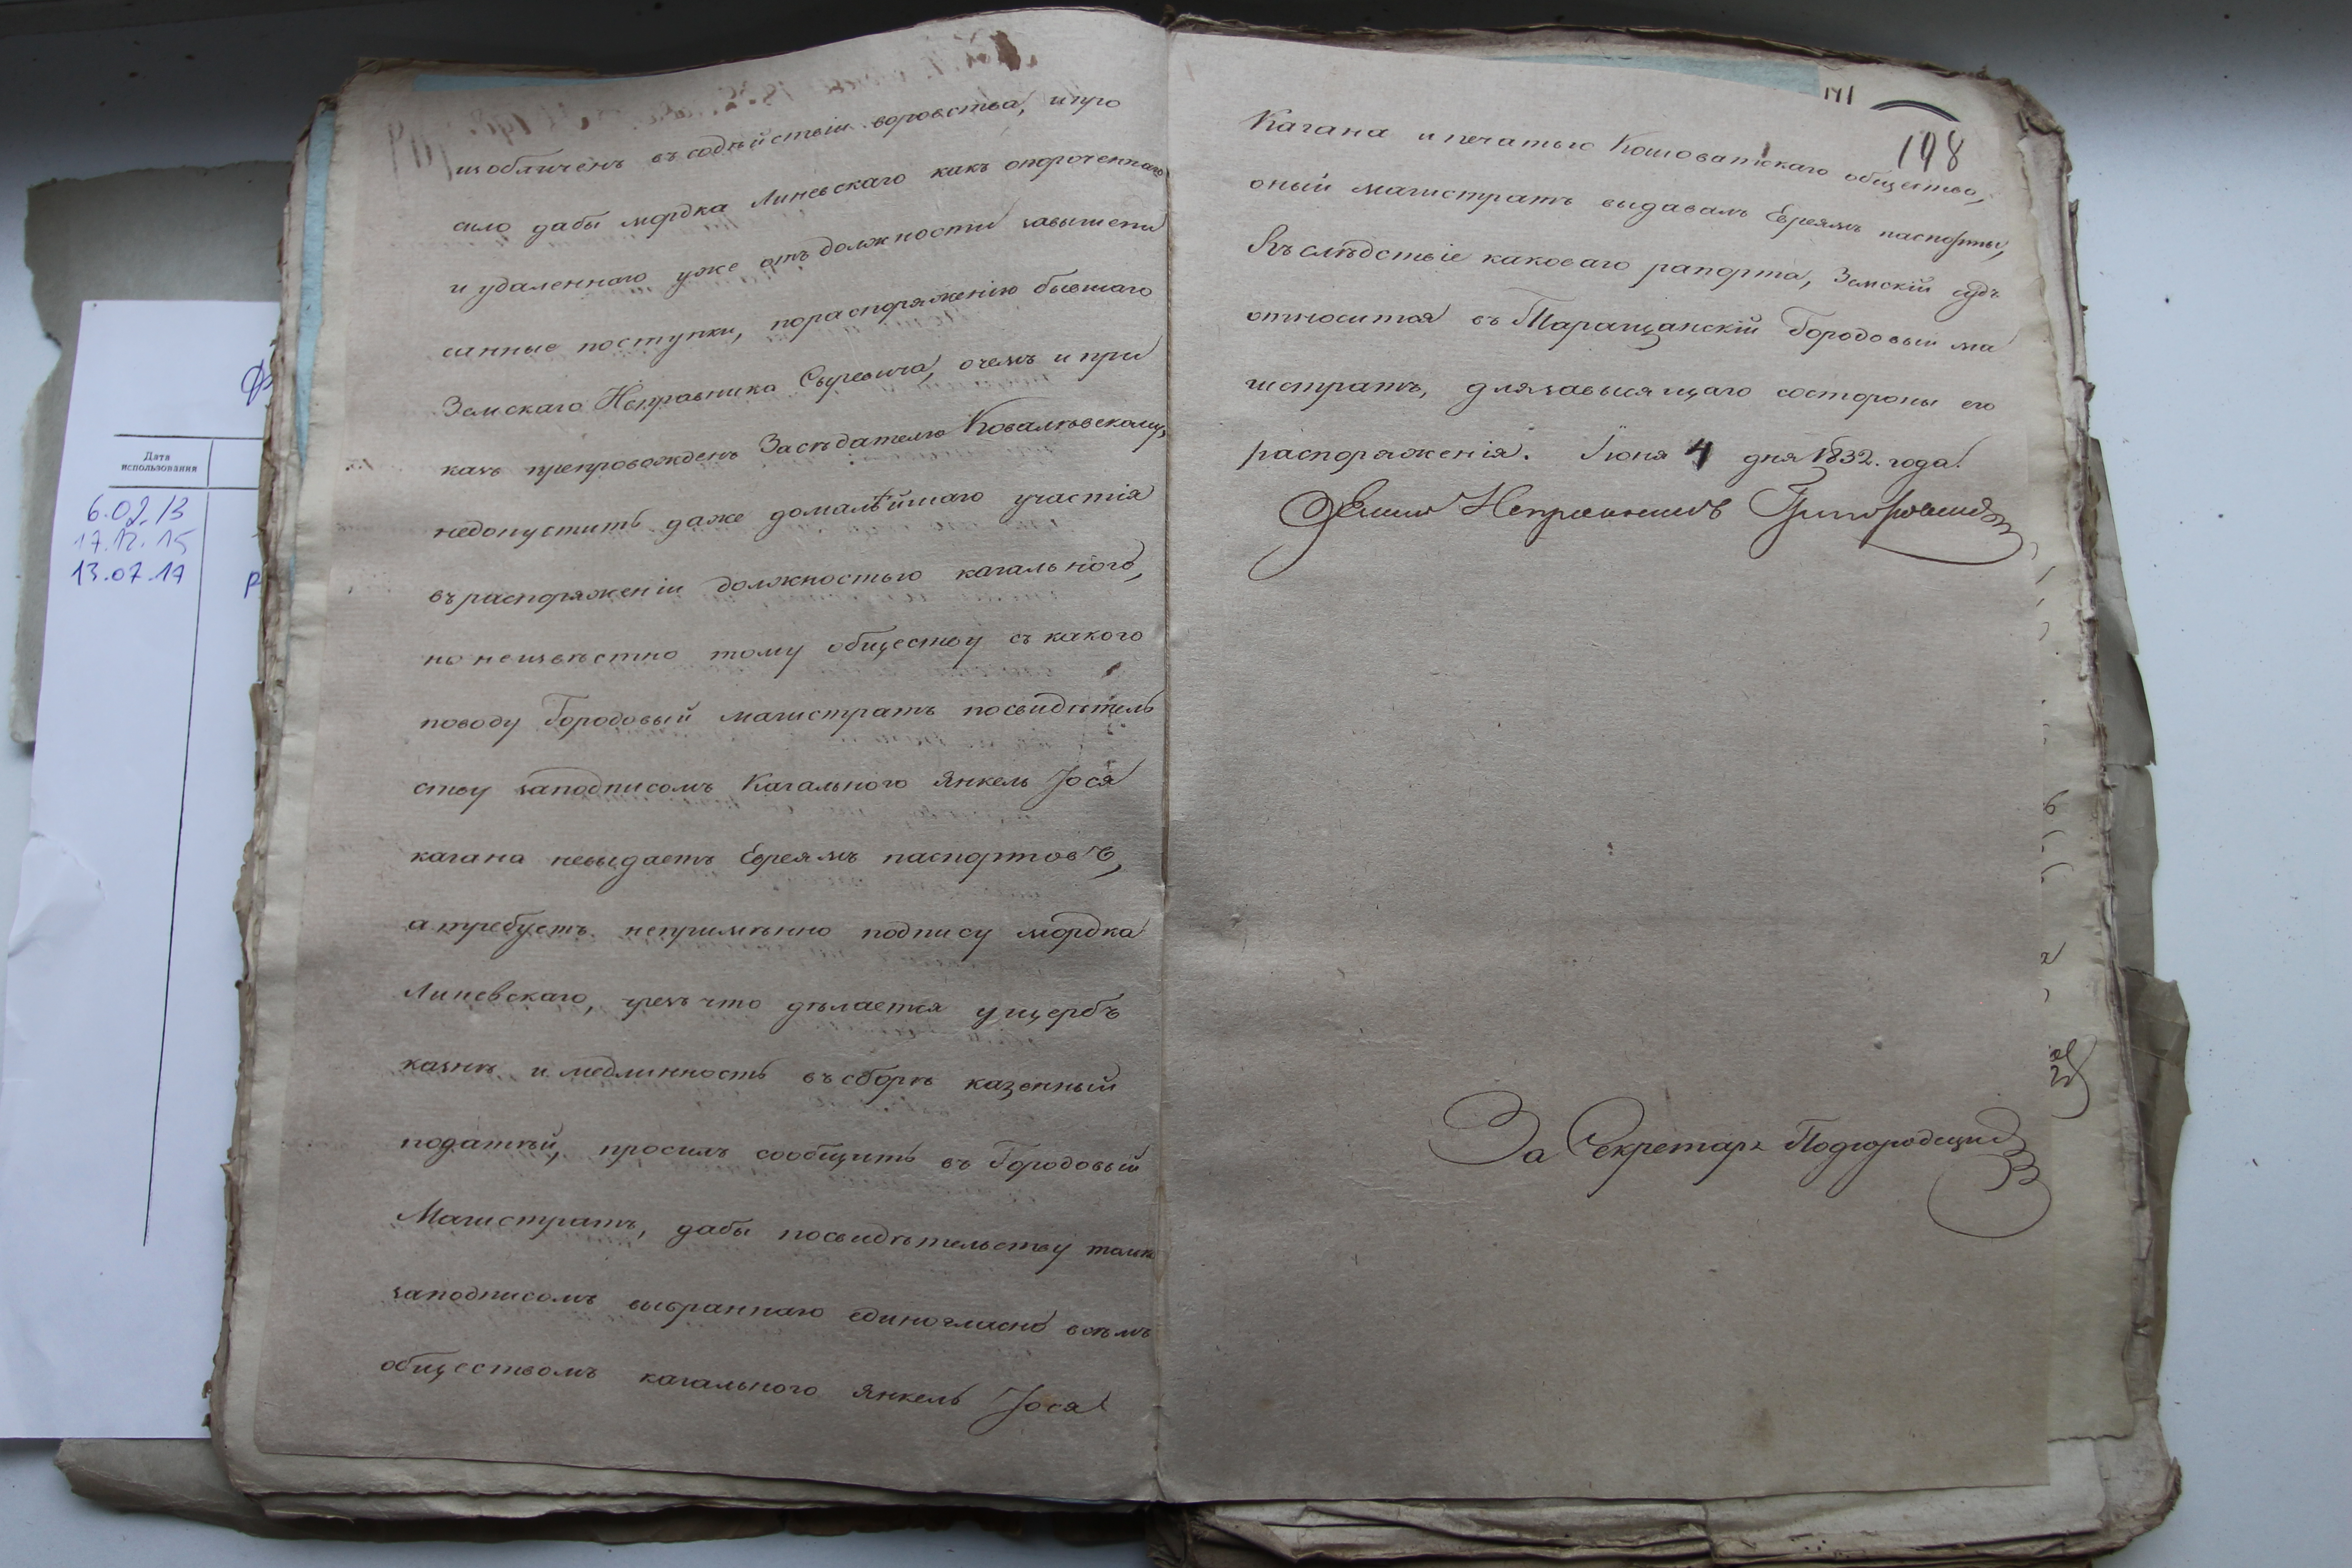 изобличенъ въ содѣйствіи воровства, и про
сило дабы мордка Линевскаго какъ опороченнаго
и удаленнаго уже отъ должности завышепи
санные поступки, пораспоряженію бывшаго
Земскаго Исправника Сыревича, очемъ и при
казъ препровожденъ Засѣдателю Ковалѣвскому,
недопустить даже домалѣйшаго участія
въ распоряженіи должностью кагального,
но неизвѣстно тому обществу съ какого
поводу Городовый магистратъ посвидѣтель
ству заподписомъ Кагального Янкель Іося
кагана невыдаетъ Евреямъ паспортовъ,
а требуетъ непримѣнно подпису мордка
Линевскаго, чрезъ что дѣлается ущербъ
казнѣ и медлинность въ сборѣ казенный
податѣй, просилъ сообщить въ Городовый
Магистратъ, дабы посвидѣтельству только
заподписомъ выбраннаго единогласно всѣмъ
обществомъ кагального Янкель Іося
141
198
Кагана и печатью Кошоватскаго общества,
оный магистратъ выдавалъ Евреямъ паспорты,
Въслѣдствіе каковаго рапорта, Земскій судъ
относится въ Таращанскій Городовый ма
гистратъ, длязавысящаго состороны его
распоряженія. Іюня 4 дня 1832. года.
Земскій Исправникъ Григоровичъ
За Секретаря Подгородецкій
Дата
использования
6.02.13
17.12.15
13.07.17